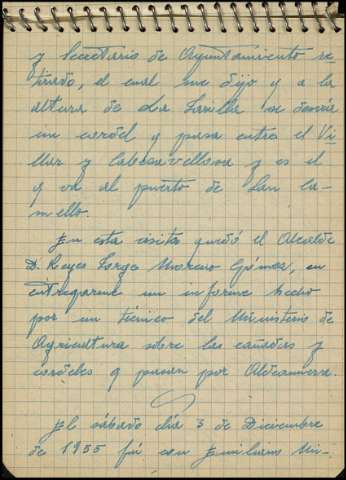 y Secretario de Ayuntamiento se
tirado, el cual me dijo q a la
altura de la Laulla se
un cordel y pasa entre el Vi
llar y Cabezavellosa y es el
q va al puerto de San Ca-
mello.
En esta visita quedó el Alcalde
D. Reyes Jorge Moreno Gómez, en
entregarme un informe hecho
por un técnico del Ministerio de
Agricultura sobre las cañadas y
cordeles q pasan por Aldeanueva.
El sábado día 3 de Diciembre
de 1955 fui con Emiliano Mi-